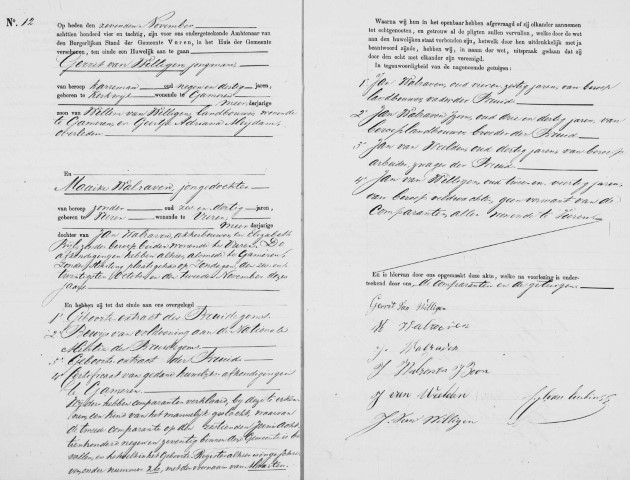 N°. 12
Op heden den zevenden November
achttien honderd vier en tachtig, zijn voor ons ondergeteekende Ambtenaar van
den Burgerlijken Stand der Gemeente Vuren, in het Huis der Gemeente
verschenen, ten einde een Huwelijk aan te gaan
Gerrit van Willigen, jongman
van beroep karreman oud negen en dertig jaren,
geboren te Kerkwijk wonende te Gameren
meerderjarige
zoon van Willem van Willigen, landbouwer, wonende
te Gameren en Geertje Adriana Meydam,
overleden
En
Maaike Walraven, jongedochter
van beroep zonder oud zes en dertig jaren,
geboren te Vuren wonende te Vuren,
meerderjarige
dochter van Jan Walraven, akkerbouwer en Elizabeth
zonder beroep beiden wonende te Vuren. De
afkondigingen hebben alhier alsmede te Gameren
zonder stuiting plaats gehad op Zondagen, den zes en
twintigsten October en den tweede November dezes
jaars
En hebben zij tot dat einde aan ons overgelegd
1° Geboorte extract des Bruidegoms.
2° Bewijs van voldoening aan de Nationale
Militie des Bruidegoms.
3° Geboorte extract der Bruid
4° Certificaat van gedane huwelijks afkondigingen
te Gameren
Wijders hebben comparanten verklaard, bij deze te erkennen
een kind van het mannelijk geslacht, waarvan
de tweede comparante op den zestienden Juni acht
tienhonderd negen en zeventig binnen deze Gemeente is bevallen
en hetwelk in het Geboorte Register alhier
onder nummer 26, met de voornaam van Maarten.
Waarna wij hun in het openbaar hebben afgevraagd of zij elkander aannemen
tot echtgenooten, en getrouw al de pligten zullen vervullen, welke door de wet
aan den huwelijken staat verbonden zijn, hetwelk door hen uitdrukkelijk met ja
beantwoord zijnde, hebben wij, in naam der wet, uitspraak gedaan dat zij
door den echt met elkander zijn vereenigd.
In tegenwoordigheid van de nagenoemde getuigen:
1° Jan Walraven, oud vier en zestig jaren, van beroep
landbouwer, vader der Bruid
2° Jan Walraven Jzoon, oud drie en dertig jaren, van
beroep landbouwer, broeder der Bruid
3° Jan van Welden, oud dertig jaren, van beroep
arbeider, zwager der Bruid
4° Jan van Willigen, oud twee en veertig jaren,
van beroep veldwachter, geen verwant van de
comparanten, allen wonende te Vuren
En is hiervan door ons opgemaakt deze akte, welke na voorlezing is onder-
teekend door ons, de comparanten en de getuigen
Gerrit van Willigen
M Walraven
J. Walraven
J Walraven Jzoon
J van Welden
J. van Willigen